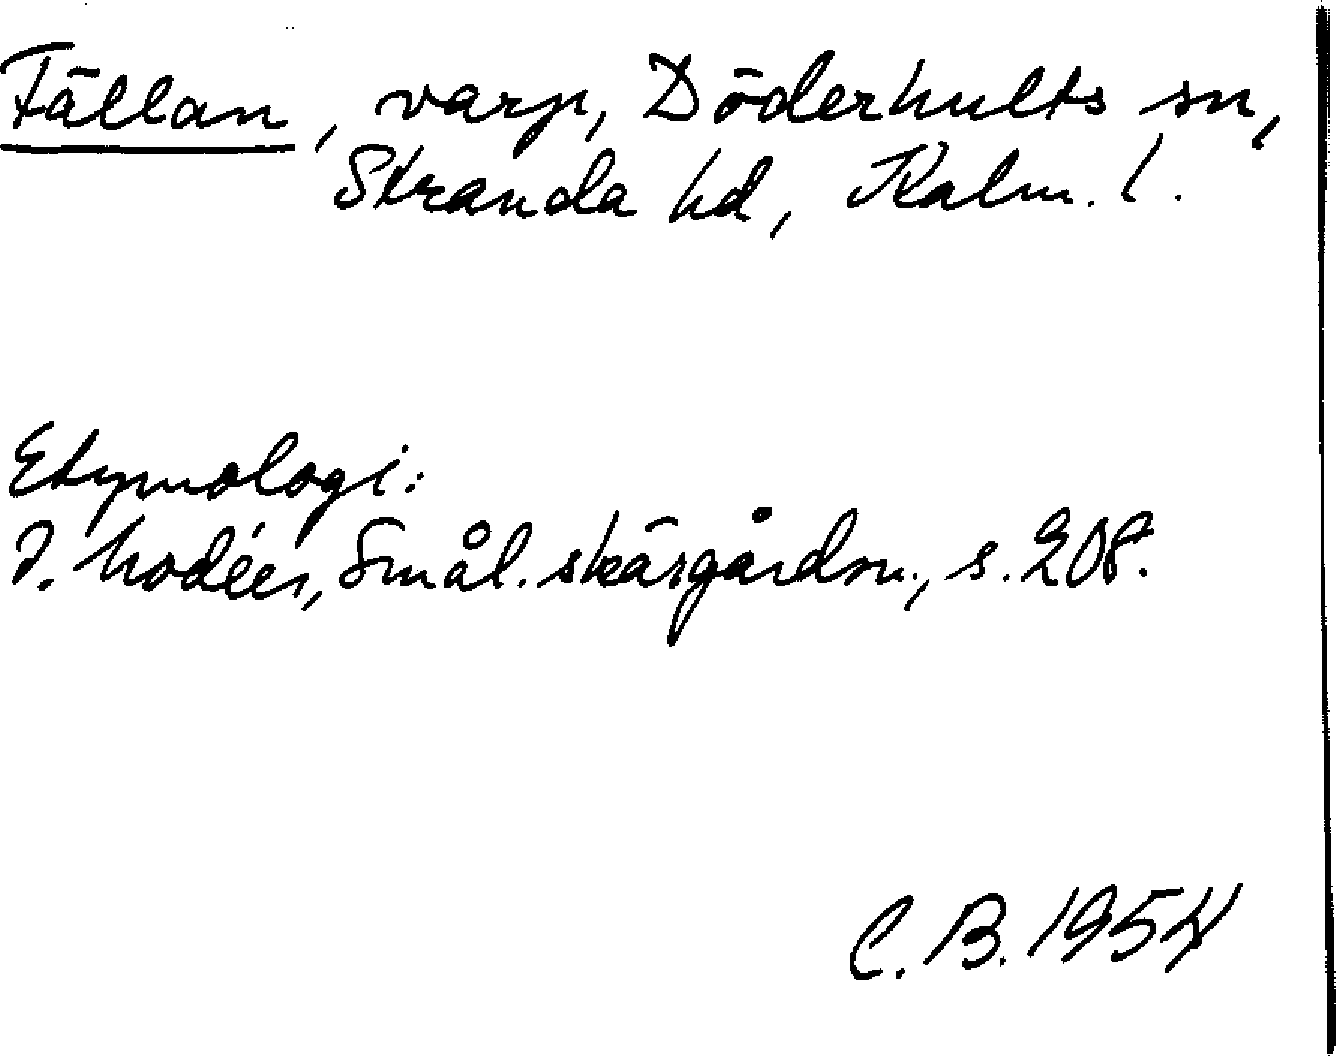 Fällan, varp, Döderhults sn,
Stranda hd, Kalm. l.
Etymologi:
I. Modéer, Smål. skärgårdsn., s. 208.
C. B. 1954